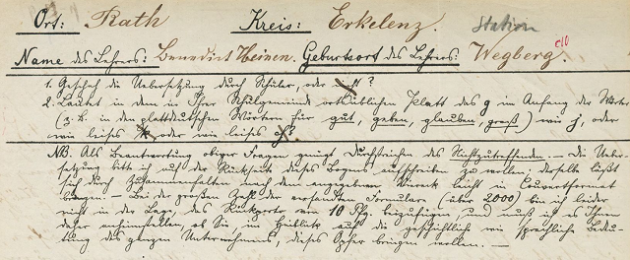 Ort: Rath Kreis: Erkelenz. Station
Name des Lehrers: Benedict Heinen. Geburtsort des Lehrers: Wegberg.
1. Geschah die Uebersetzung durch Schüler, oder nicht?
2. Lautet in dem in Ihrer Schulgemeinde ortsüblichen Platt das g im Anfang der Wörter
(z. B. in den plattdeutschen Wörtern für gut, geben, glauben, groß) wie j, oder
wie leises k, oder wie leises ch?
NB. Als Beantwortung obiger Fragen genügt Durchstreichen des Nichtzutreffenden. — Die Ueber-
setzung bitte ich auf der Rückseite dieses Bogens aufschreiben zu wollen; derselbe läßt
sich durch Zusammenfalten nach dem angegebenen Bruch leicht in Couvertformat
bringen. — Bei der großen Zahl der versandten Formulare (über 2000) bin ich leider
nicht in der Lage, das Rückporto von 10 Pfg. beizufügen, und muß ich es Ihnen
daher anheimstellen, ob Sie im Hinblick auf die geschichtlich wie sprachliche Bedeu-
tung des ganzen Unternehmens, dieses Opfer bringen wollen. —